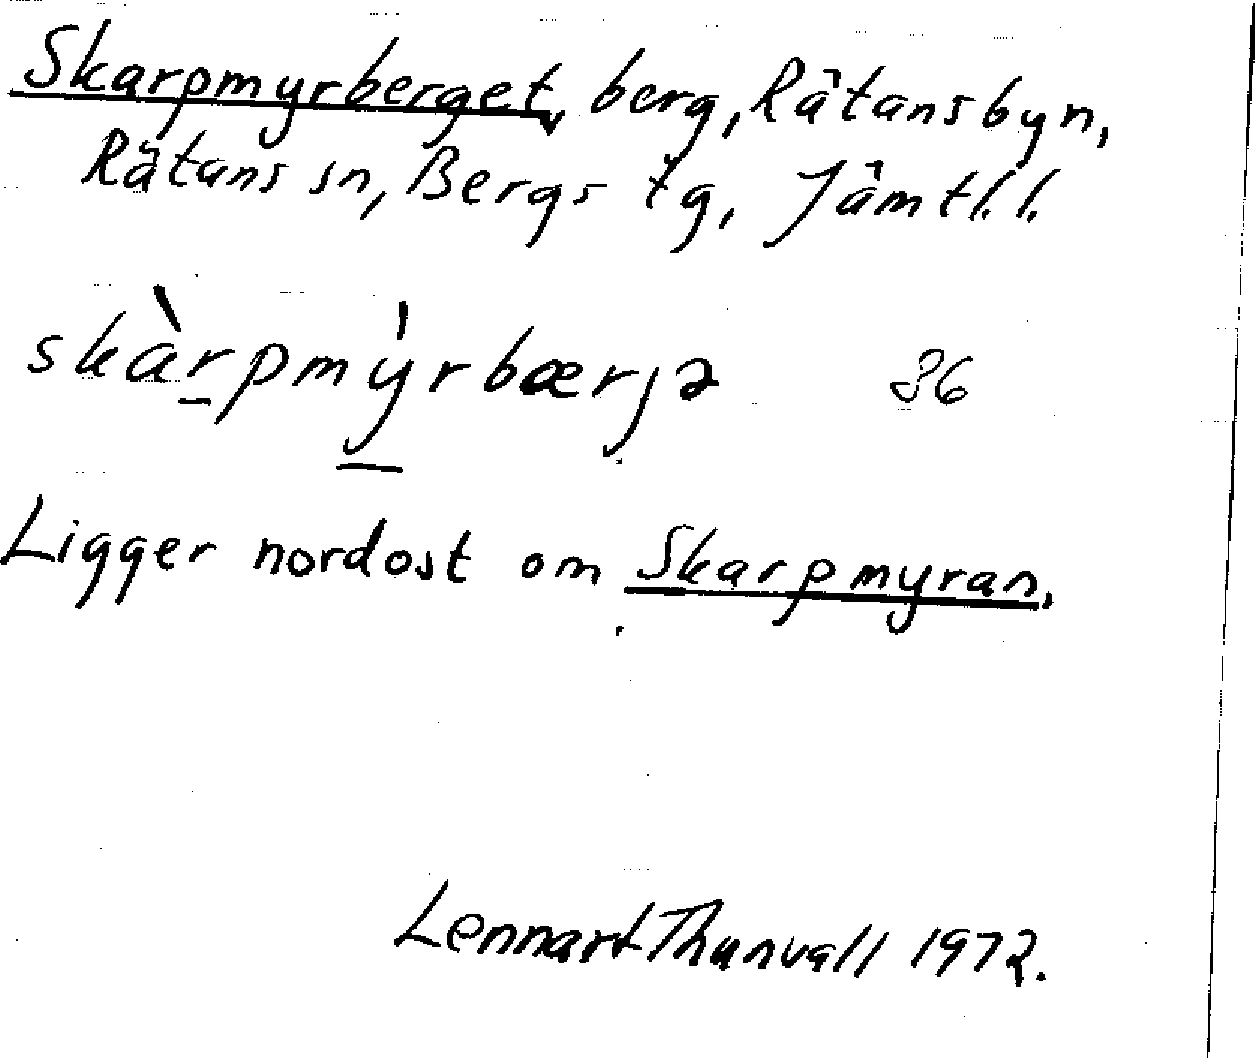 Skarpmyrberget, berg, Rätansbyn,
Rätans sn, Bergs tg, Jämtl. l.
skàrpmýrbærjə 36
Ligger nordost om Skarpmyran.
Lennart Thunvall 1972.